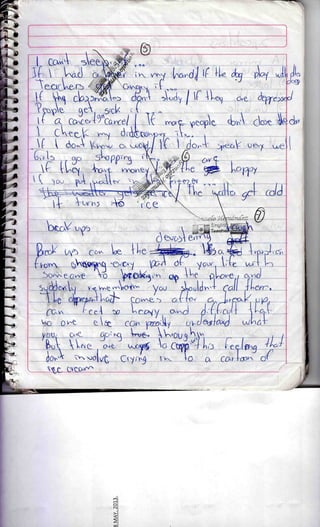 5
I can't sleep if ...
If I had a in my hand / If the dog play with
Teachers get angry if ...
If the classmates don't study / If they are depressed
People get sick if
a cancer / If more people don't close the
I check my dictionary if ...
If I don't know a word / If I don't speak very well
Girls go shopping if
6
If they have money / are happy
If you put watter in the freezer ...
the watter get cold
it turns to ice
7
break ups
devastating
Break ups can be the It's a transition
from sharing every part of your life with
someone to in up the phone, and
suddenly remembering you shouldn't call them.
The that comes after a break up,
can feel so heavy and difficult that
no one else can really understand what
you are going through
But there are ways to this feeling that
don't involve crying in to a cartoon of
ice cream
8 MAY. 2013